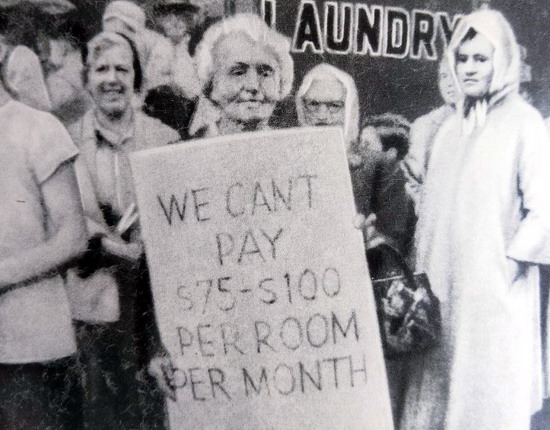 LAUNDRY
WE CAN'T
PAY
$75-$100
PER ROOM
PER MONTH